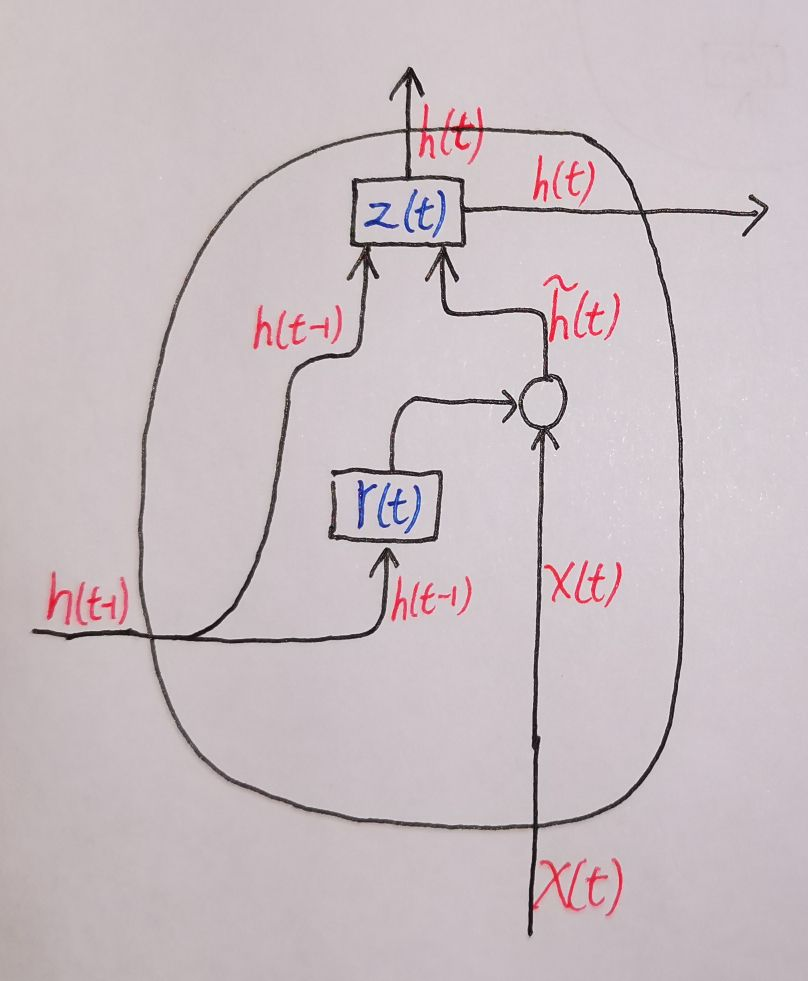 h(t)
h(t)
z(t)
h(t-1)
h̃(t)
r(t)
h(t-1)
h(t-1)
X(t)
X(t)